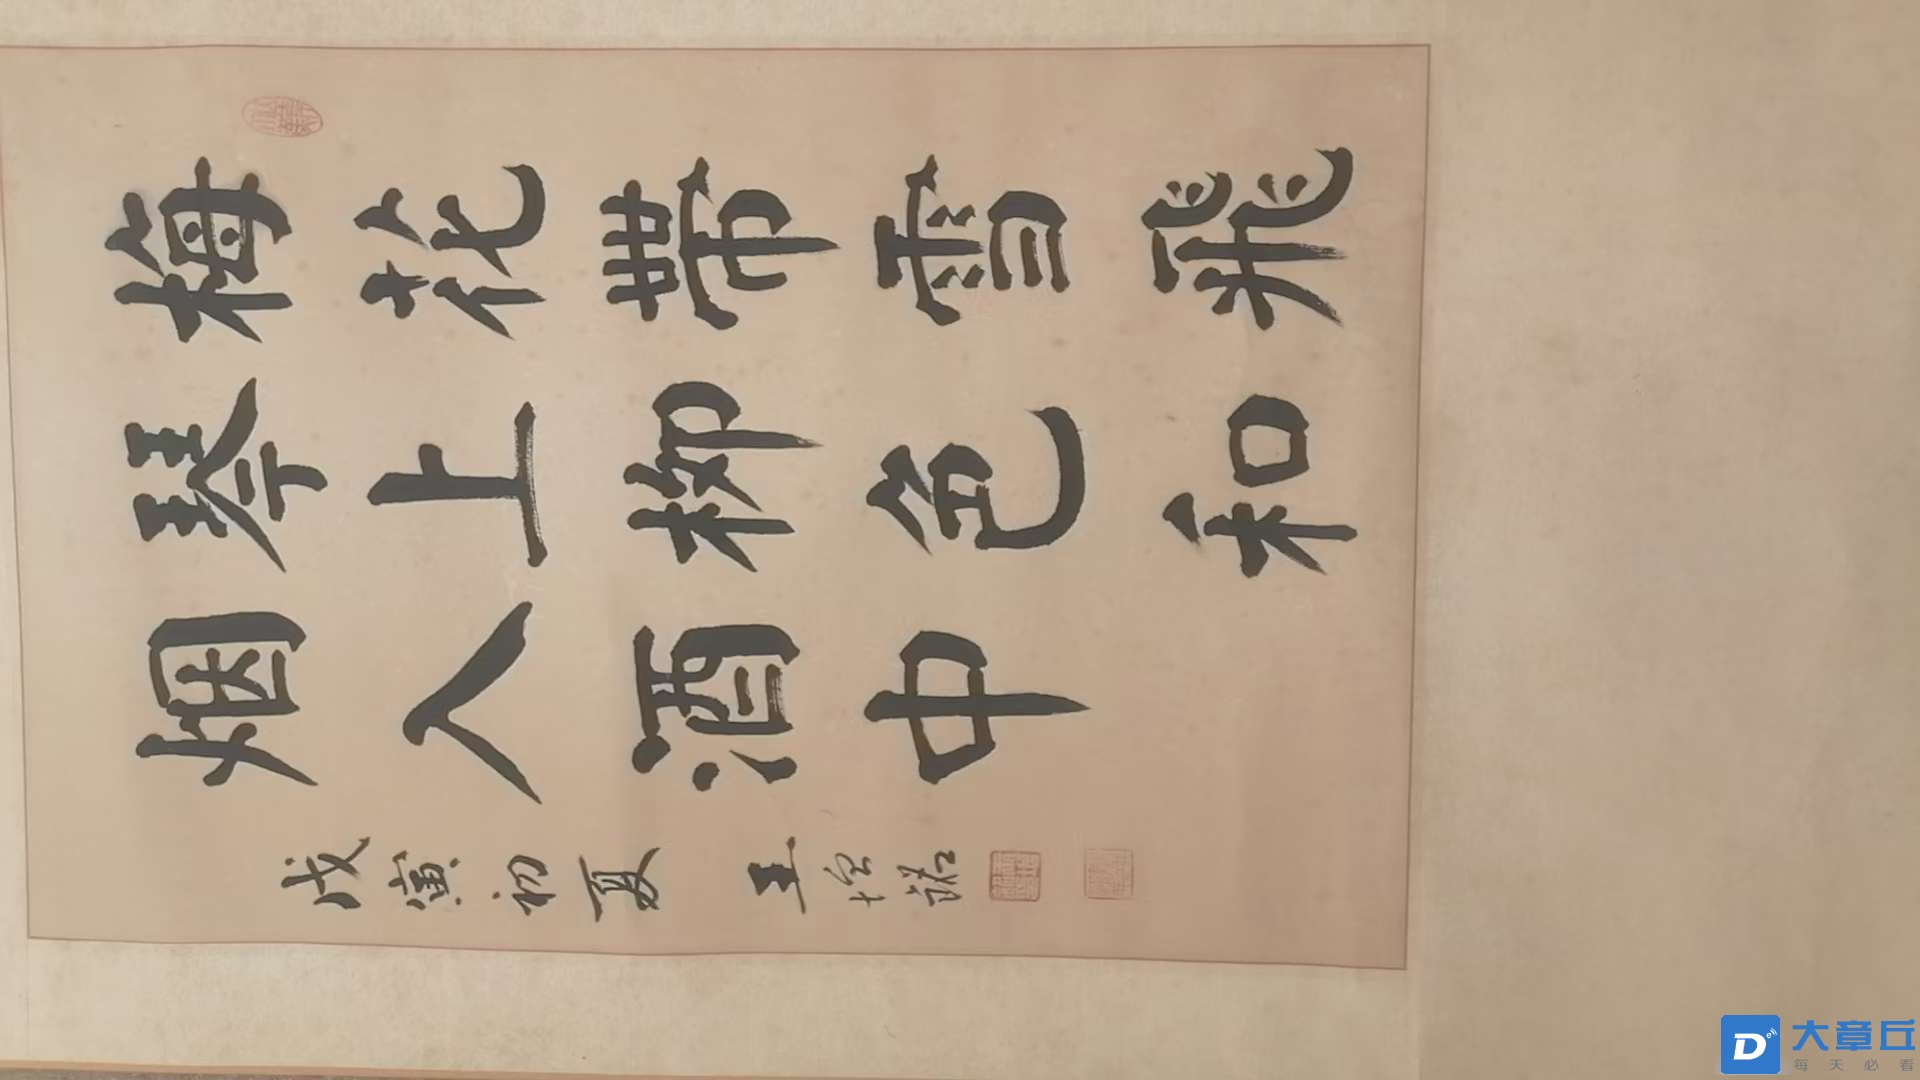 梅花帶雪飛
琴上柳色和
烟入酒中
戊寅初夏 王
大章丘
每天必看